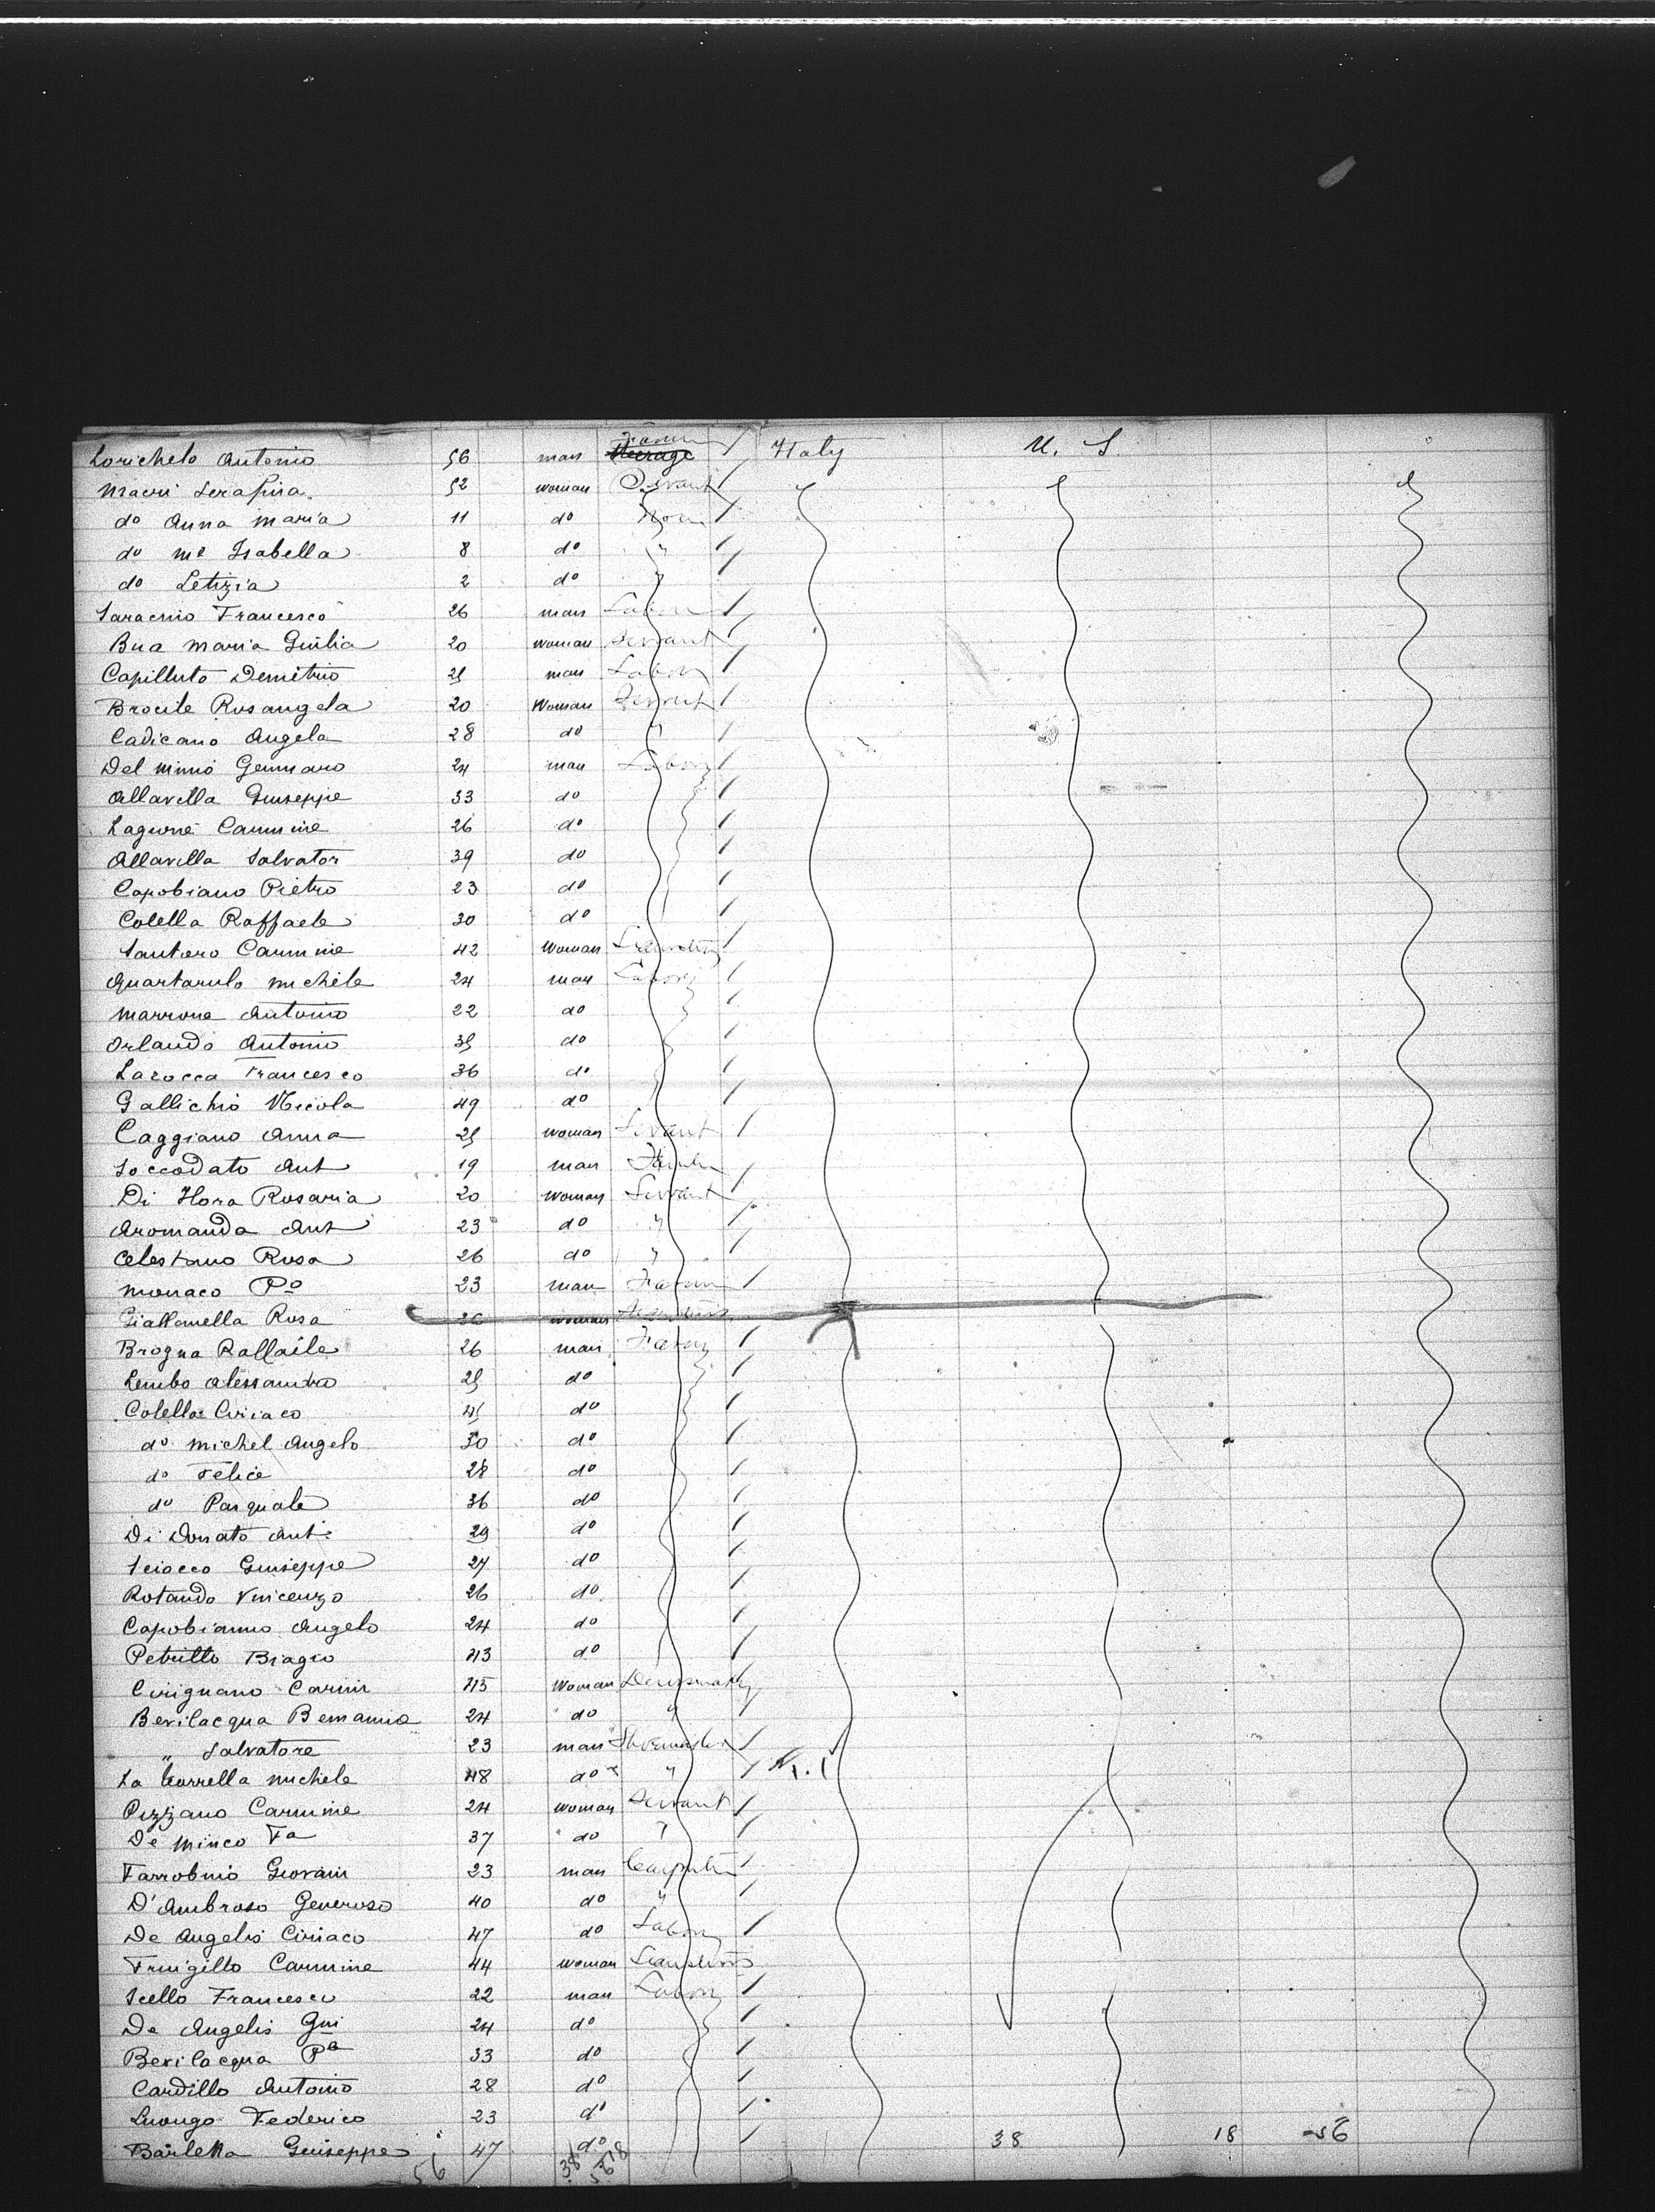 Lorichelo Antonio 56 man Steerage Farm Italy U. S.
Macri Serafina 52 woman Servant
do Anna Maria 11 do Non
do Mª Isabella 8 do "
do Letizia 2 do "
Saracino Francesco 26 man Labor
Bua Maria Giulia 20 woman Servant
Capilluto Demitrio 25 man Labor
Rosangela 20 Woman Servant
Cadicano Angela 28 do "
Del Minio Gennaro 24 man Labor
Allavella Giuseppe 33 do
Carmine 26 do
Allavella Salvator 39 do
Capobiano Pietro 23 do
Colella Raffaele 30 do
Santoro Carmine 42 Woman
Quartarulo Michele 24 man Labor
Marrone Antonio 22 do
Orlando Antonio 35 do
Larocca Francesco 36 do
Gallichio Nicola 49 do
Caggiano Anna 25 woman Servant
Soccodato Ant 19 man
Di Hora Rosaria 20 woman Servant
Aromanda Ant 23 do "
Celestano Rosa 26 do "
Monaco Pº 23 man Farm
Rosa woman
Brogna Raffaile 26 man Farm
Lembo Alessandro 25 do
Colella Ciriaco 45 do
do Michel Angelo 30 do
do Felice 28 do
do Pasquale 36 do
Di Donato Ant 29 do
Sciocco Giuseppe 27 do
Rotando Vincenzo 26 do
Capobianno Angelo 24 do
Petrillo Biagio 43 do
Cirignano Carmin 45 Woman
Bevilacqua 24 do "
" Salvatore 23 man Shoemaker
La Michele 48 do "
Pizzano Carmine 24 woman Servant
De Minco Fa 37 do "
Farrobnio Giovani 23 man Carpenter
D'Ambroso Generoso 40 do "
De Angelis Ciriaco 47 do Labor
Frungillo Carmine 44 woman
Scello Francesco 22 man Labor
De Angelis Gui 24 do
Bevilacqua Pª 33 do
Cardillo Antonio 28 do
Luongo Federico 23 do
Barletta Giuseppe 47 do 38 18 56
56 38 18 56